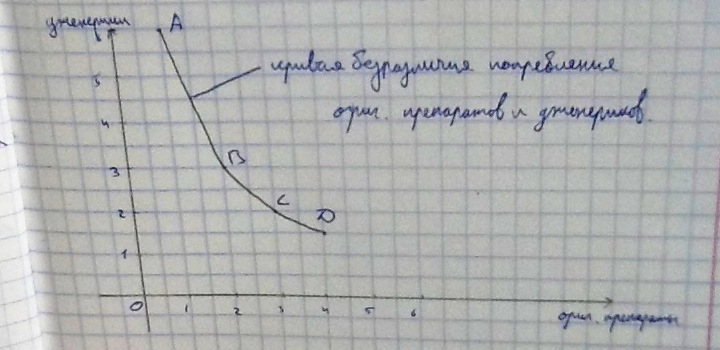 дженерики
A
6
кривая безразличия потребления
ориг. препаратов и дженериков.
5
4
B
3
C
D
2
1
0 1 2 3 4 5 6
ориг. препараты